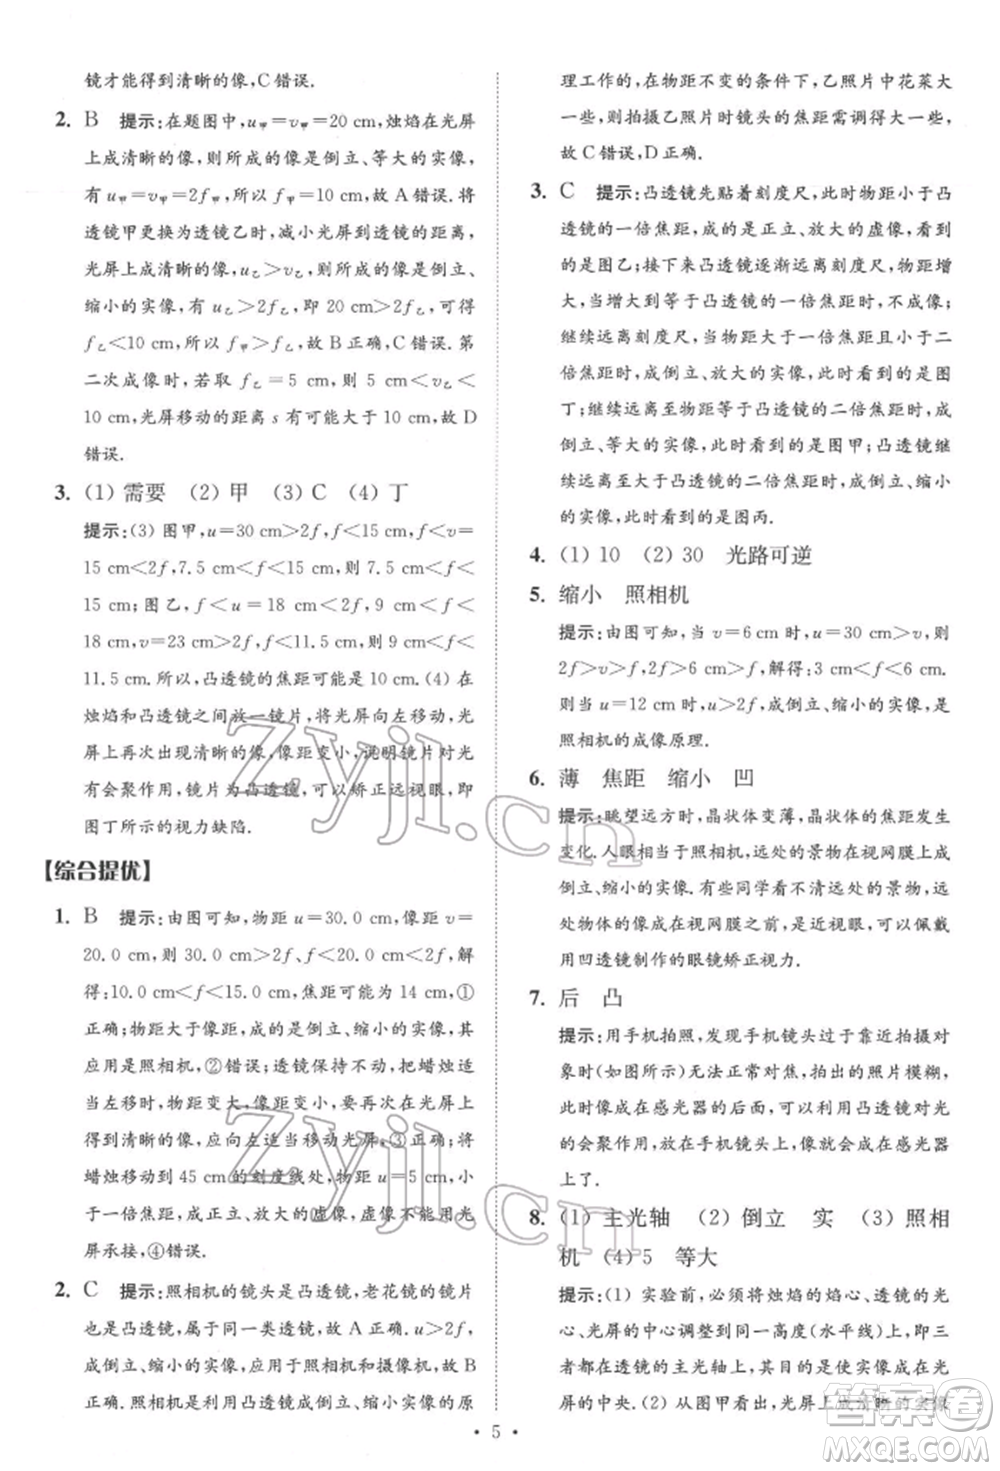 镜才能得到清晰的像,C错误.
2. B 提示:在题图中,u甲=v甲=20 cm,烛焰在光屏
上成清晰的像,则所成的像是倒立、等大的实像,
有u甲=v甲=2f甲,所以f甲=10 cm,故A错误.将
透镜甲更换为透镜乙时,减小光屏到透镜的距离,
光屏上再次得到清晰的像,说明此时成的是倒立、
缩小的实像,有u乙>2f乙,即20 cm>2f乙,可得
f乙<10 cm,所以f甲>f乙,故B正确,C错误.第
二次成像时,若取f乙=5 cm,则5 cm<v乙<
10 cm,光屏移动的距离s不可能大于10 cm,故D
错误.
3. (1) 需要 (2) 甲 (3) C (4) 丁
提示:(3) 图甲,u=30 cm>2f,f<15 cm,f<v=
15 cm<2f,7.5 cm<f<15 cm,则7.5 cm<f<
15 cm;图乙,f<u=18 cm<2f,9 cm<f<
18 cm,v=23 cm>2f,f<11.5 cm,则9 cm<f<
11.5 cm.所以,凸透镜的焦距可能为10 cm.(4) 在
烛焰和凸透镜之间放一镜片,将光屏向左移动,光
屏上再次出现清晰的像,像距变小,说明镜片对光
有会聚作用,镜片为凸透镜,可以矫正远视眼,即
图丁所示的视力缺陷.
【综合提优】
1. B 提示:由图可知,物距u=30.0 cm,像距v=
20.0 cm,则30.0 cm>2f、f<20.0 cm<2f,解
得:10.0 cm<f<15.0 cm,焦距可能为14 cm,①
正确;物距大于像距,成的是倒立、缩小的实像,其
应用是照相机,②错误;透镜保持不动,把蜡烛适
当左移时,物距变大,像距变小,若要在光屏上
得到清晰的像,应向左适当移动光屏,③正确;若将
蜡烛移动到45 cm的刻度线处,物距u=5 cm,
小于一倍焦距,成正立、放大的虚像,虚像不能用光
屏承接,④错误.
2. C 提示:照相机的镜头是凸透镜,老花镜的镜片
也是凸透镜,属于同一类透镜,故A正确.u>2f,
成倒立、缩小的实像,应用于照相机和摄像机,故B
正确.照相机是利用凸透镜成倒立、缩小实像的原
理工作的,在物距不变的条件下,乙照片中花菜大
一些,即拍摄乙照片时镜头的焦距需调得大一些,
故C错误,D正确.
3. C 提示:凸透镜先贴着刻度尺,此时物距小于凸
透镜的一倍焦距,成的是正立、放大的虚像,此时看
到的是图乙;接下来凸透镜远离刻度尺,物距增
大,当增大到等于凸透镜的一倍焦距时,不成像;
继续远离刻度尺,当物距大于凸透镜的一倍焦距、
小于二倍焦距时,成倒立、放大的实像,看到的是图
丁;继续远离,当物距等于凸透镜的二倍焦距时,成
倒立、等大的实像,此时看到的是图甲;凸透镜继续
远离,当物距大于凸透镜的二倍焦距时,成倒立、缩
小的实像,此时看到的是图丙.
4. (1) 10 (2) 30 光路可逆
5. 缩小 照相机
提示:由图可知,当v=6 cm时,u=30 cm>v,则
2f>v>f,即2f>6 cm>f,解得:3 cm<f<6 cm.
则当u=12 cm时,u>2f,成倒立、缩小的实像,是
照相机的成像原理.
6. 薄 焦距 缩小 凹
提示:眺望远方时,晶状体变薄,晶状体的焦距发生
变化.人眼相当于照相机,远处的景物在视网膜上成
倒立、缩小的实像.有些同学看不清远处的景物,是
因为像成在视网膜之前,远处的景物,可以佩戴
用凹透镜制作的眼镜矫正视力.
7. 后 凸
提示:用手机拍照,发现手机镜头有时在靠近拍摄对
象时(如图所示)无法完成对焦,拍出来的照片模糊,
此时像应成在感光器的后面,应利用凸透镜对光
的会聚作用,放在手机镜头上,像就会成在感光器
上了.
8. (1) 主光轴 (2) 倒立 实 (3) 照相
机 (4) 5 等大
提示:(1) 实验前,必须将烛焰的焰心、透镜的光
心、光屏的中心调整到同一高度(水平线)上,即三
者在透镜的主光轴上,其目的是使实像成在光屏
的中央.(2) 从图甲看出,光屏上成的清晰的实像
• 5 •
Zyjl.cn
Zyjl.cn
答案卷
MXQE.COM